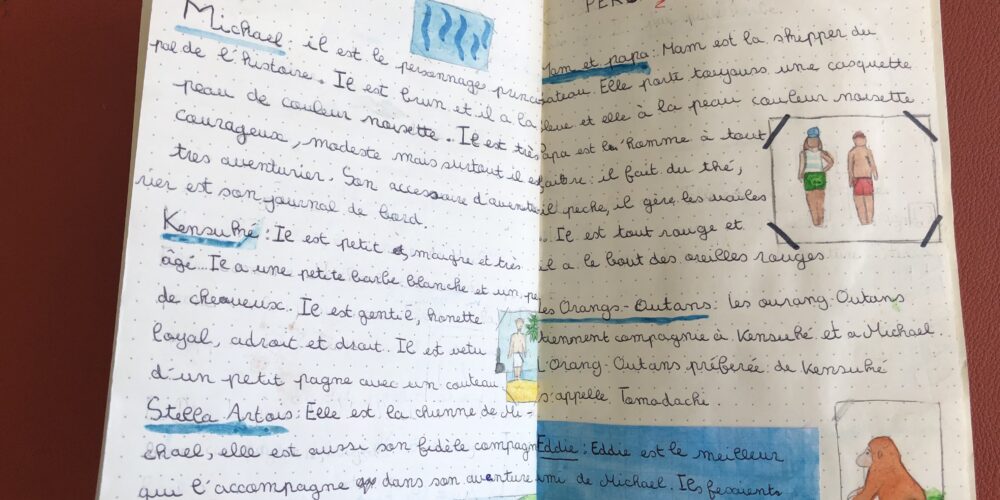 Michael : il est le personnage princi
pal de l'histoire. Il est brun et il a la
peau de couleur noisette. Il est très
courageux, modeste mais surtout il es
tres aventurier. Son accessoire d'aventu
rier est son journal de bord.
Kensuké : Il est petit maigre et très
âgé... Il a une petite barbe blanche et un pe
de cheveux. Il est gentil, honette
loyal, adroit et droit. Il est vetu
d'un petit pagne avec un couteau.
Stella Artois : Elle est la chienne de Mi-
chael, elle est aussi son fidèle compagn
qui l'accompagne dans son aventure
PERSO
Mam et papa : Mam est la skipper du
bateau. Elle porte toujours une casquette
bleue et elle à la peau couleur noisette
Papa est l' homme à tout
faire : il fait du thé,
il peche, il gère les voiles
... Il est tout rouge et
il a le bout des oreilles rouges
Les Orangs-Outans : les ourang-Outans
tiennent compagnie à Kensuké et a Michael.
L'Orang-Outans préferée de Kensuké
s'appelle Tomodachi.
Eddie : Eddie est le meilleur
ami de Michael. Ils fesaient